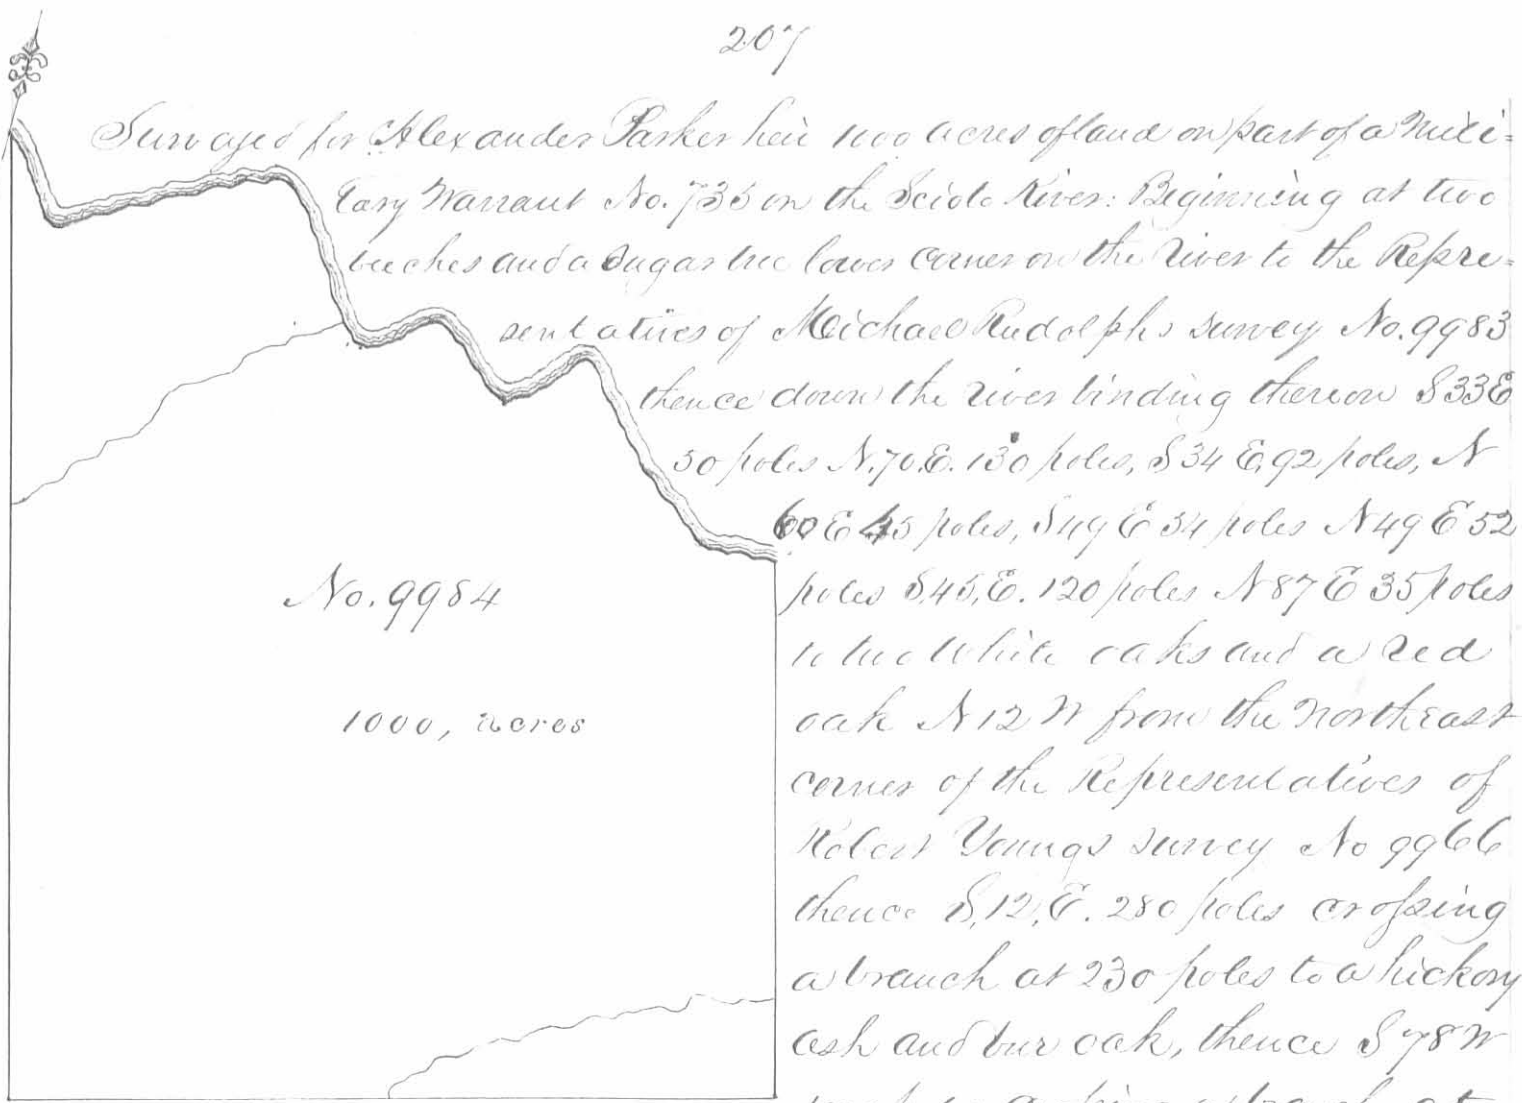 207
Surveyed for Alexander Parker heir 1000 acres of land on part of a Mili=
tary Warrant No. 735 on the Scioto River: Beginning at two
beeches and a sugar tree lower corner on the river to the Repre=
sentatives of Michael Rudolph's survey No. 9983
thence down the river binding thereon S 33 E
50 poles N. 70. E. 130 poles, S 34 E, 92 poles, N
60 E 45 poles, S 49 E 54 poles N 49 E 52
poles S. 45, E. 120 poles N 87 E 35 poles
to two White oaks and a red
oak N 12 W from the northeast
corner of the Representatives of
Robert Youngs survey No 9966
thence S, 12, E. 280 poles crossing
a branch at 230 poles to a hickory
ash and bur oak, thence S 78 W
No. 9984
1000, acres